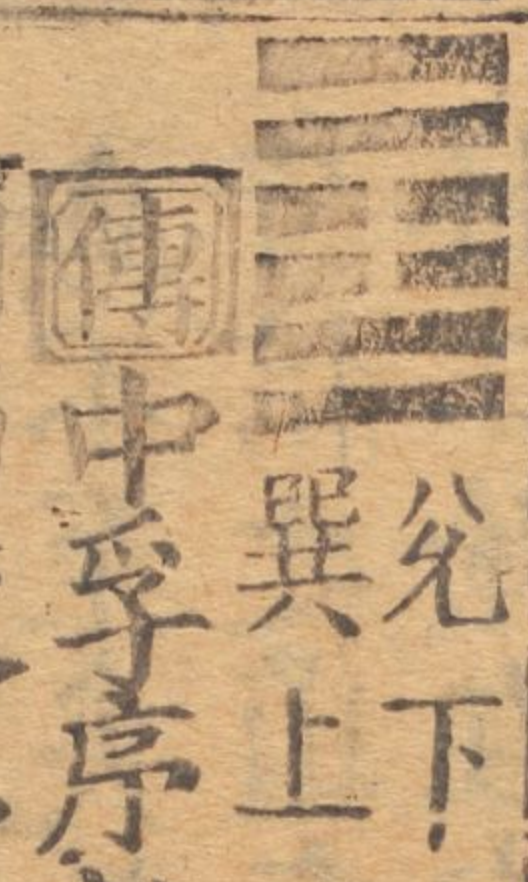 兌下
巽上
傳中孚序